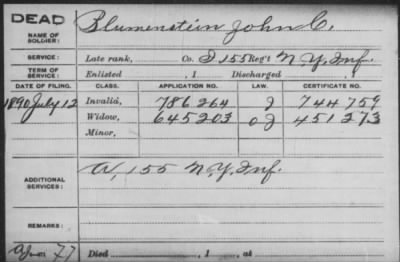 DEAD
NAME OF SOLDIER: Blumenstein John C.
SERVICE: Late rank, Co. I 155 Reg't N.Y. Inf.
TERM OF SERVICE: Enlisted , 1 Discharged , 1
DATE OF FILING. CLASS. APPLICATION NO. LAW. CERTIFICATE NO.
1890 July 12 Invalid, 786264 J 744759
Widow, 645203 O J 451273
Minor,
ADDITIONAL SERVICES: A, 155 N.Y. Inf.
REMARKS:
Died , 1 , at